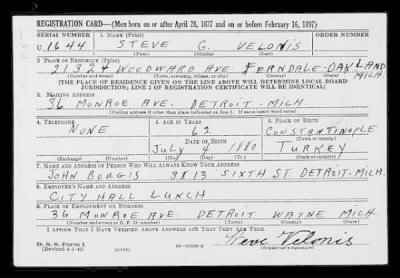 REGISTRATION CARD—(Men born on or after April 28, 1877 and on or before February 16, 1897)
SERIAL NUMBER 1. NAME (Print) ORDER NUMBER
U 1644 STEVE G. VELONIS
(First) (Middle) (Last)
2. PLACE OF RESIDENCE (Print)
21324 WOODWARD AVE. FERNDALE-OAKLAND MICH.
(Number and street) (Town, township, village, or city) (County) (State)
[THE PLACE OF RESIDENCE GIVEN ON THE LINE ABOVE WILL DETERMINE LOCAL BOARD
JURISDICTION; LINE 2 OF REGISTRATION CERTIFICATE WILL BE IDENTICAL]
3. MAILING ADDRESS
36 MONROE AVE. DETROIT-MICH.
[Mailing address if other than place indicated on line 2. If same insert word same]
4. TELEPHONE 5. AGE IN YEARS 6. PLACE OF BIRTH
NONE 62 CONSTANTINOPLE
DATE OF BIRTH (Town or county)
July 4 1880 TURKEY
(Exchange) (Number) (Mo.) (Day) (Yr.) (State or country)
7. NAME AND ADDRESS OF PERSON WHO WILL ALWAYS KNOW YOUR ADDRESS
JOHN BOUGIS 3813 SIXTH ST. DETROIT-MICH.
8. EMPLOYER'S NAME AND ADDRESS
CITY HALL LUNCH
9. PLACE OF EMPLOYMENT OR BUSINESS
36 MONROE AVE. DETROIT WAYNE MICH.
(Number and street or R. F. D. number) (Town) (County) (State)
I AFFIRM THAT I HAVE VERIFIED ABOVE ANSWERS AND THAT THEY ARE TRUE.
D. S. S. Form 1
(Revised 4-1-42) (over) Steve Velonis
(Registrant's signature)